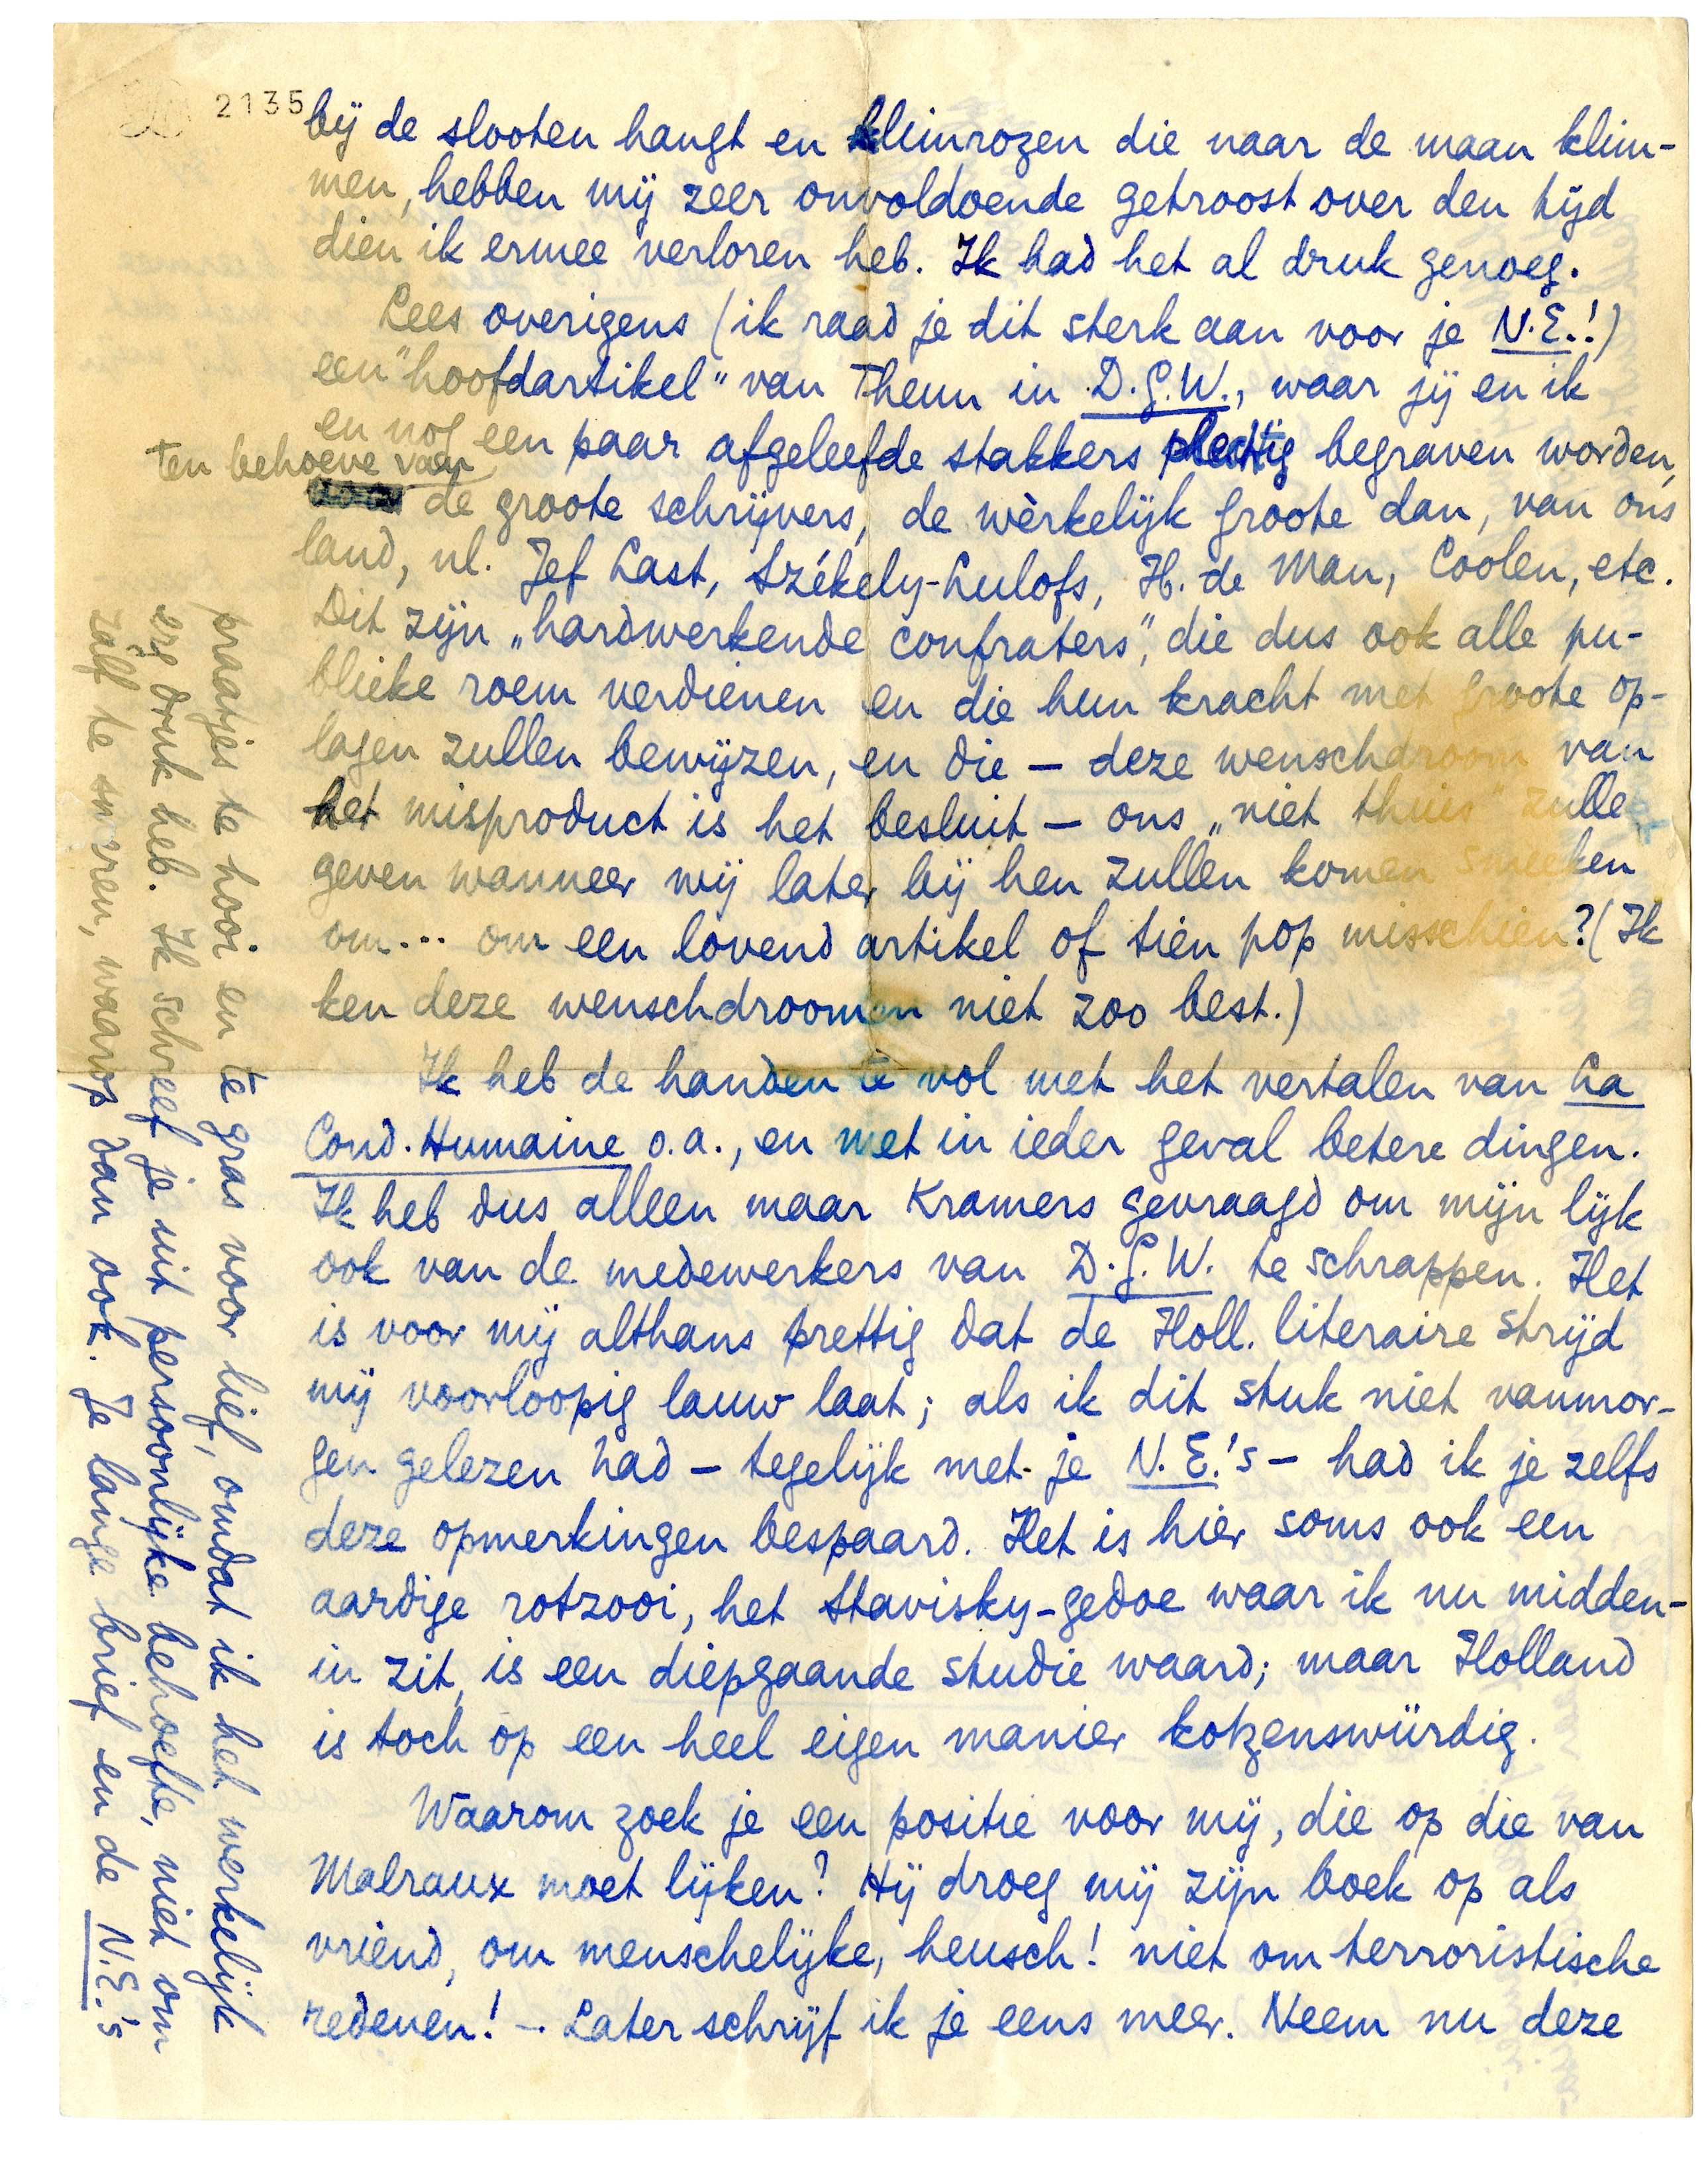 2135
bij de slooten hangt en klimrozen die naar de maan klim-
men, hebben mij zeer onvoldoende getroost over den tijd
dien ik ermee verloren heb. Ik had het al druk genoeg.
Lees overigens (ik raad je dit sterk aan voor je N.E.!)
een "hoofdartikel" van Theun in D.G.W., waar jij en ik
en nog een paar afgeleefde stakkers plechtig begraven worden,
ten behoeve van
de groote schrijvers, de wèrkelijk groote dan, van ons
land, nl. Jef Last, Székely-Lulofs, H. de Man, Coolen, etc.
Dit zijn „hardwerkende confraters”, die dus ook alle pu-
blieke roem verdienen en die hun kracht met groote op-
lagen zullen bewijzen, en die — deze wenschdroom van
het misproduct is het besluit — ons „niet thuis” zullen
geven wanneer wij later bij hen zullen komen smeeken
om... om een lovend artikel of tien pop misschien? (Ik
ken deze wenschdroomen niet zoo best.)
Ik heb de handen te vol met het vertalen van La
Cond. Humaine o.a., en met in ieder geval betere dingen.
Ik heb dus alleen maar Kramers gevraagd om mijn lijk
ook van de medewerkers van D.G.W. te schrappen. Het
is voor mij althans prettig dat de Holl. literaire strijd
mij voorloopig lauw laat; als ik dit stuk niet vanmor-
gen gelezen had — tegelijk met je N.E.'s — had ik je zelfs
deze opmerkingen bespaard. Het is hier soms ook een
aardige rotzooi, het Stavisky-gedoe waar ik nu midden-
in zit, is een diepgaande studie waard; maar Holland
is toch op een heel eigen manier kotzenswürdig.
Waarom zoek je een positie voor mij, die op die van
Malraux moet lijken? Hij droeg mij zijn boek op als
vriend, om menschelijke, heusch! niet om terroristische
redenen! — Later schrijf ik je eens meer. Neem nu deze
praatjes te hooi en te gras voor lief, omdat ik het werkelijk
erg druk heb. Ik schreef je uit persoonlijke behoefte, niet om
zalf te smeren, waarop dan ook. Je lange brief en de N.E.'s